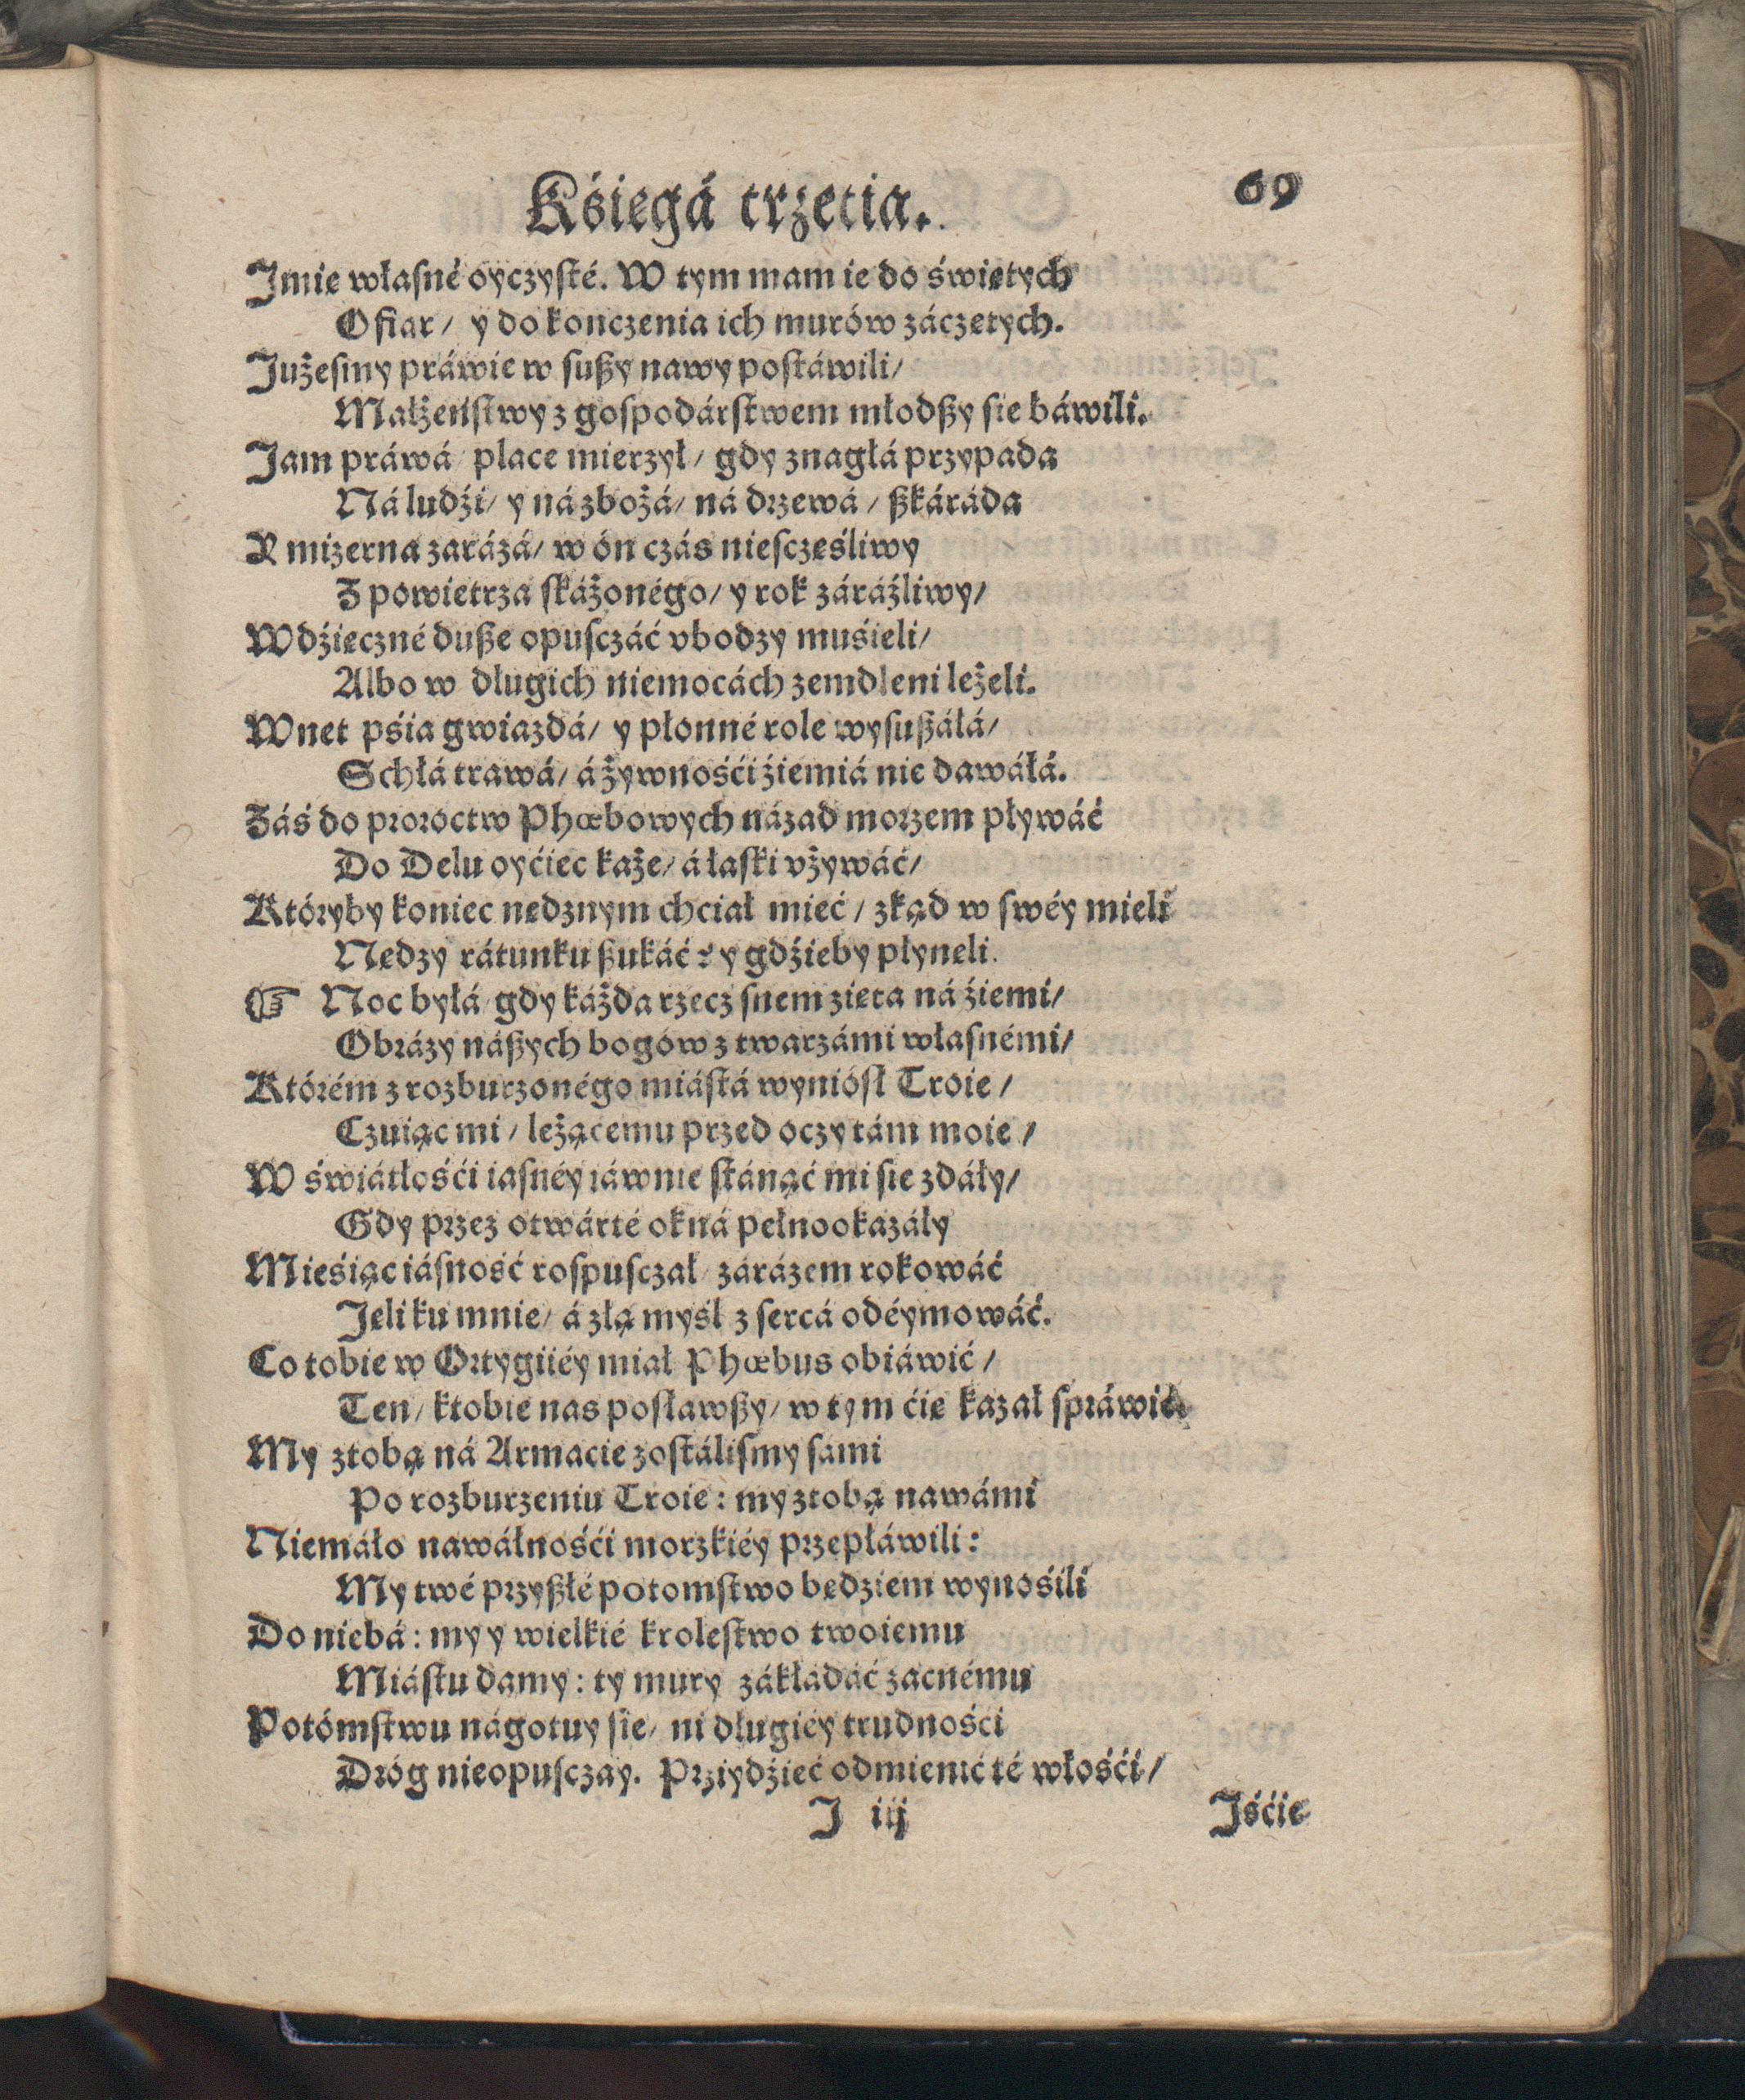 Kśięgá trzetia.
69
Jmię własné oyczysté. W tym mam ie do świętych
Ofiar / y dokonczenia ich murów záczętych.
Jużesmy práwie w sußy nawy postáwili /
Małżeństwy z gospodárstwem młodßy sie báwili.
Jam práwá / place mierzył / gdy znagłá przypada
Ná ludźi / y ná zbożá / ná drzewá / ßkáráda
Y mizerna zarázá / w ón czás niesczęśliwy
Z powietrza skáżonégo / y rok záráźliwy /
Wdźięczné duße opusczáć vbodzy muśieli /
Albo w długich niemocách zemdleni leżeli.
Wnet pśia gwiazdá / y płonné role wysußáłá /
Schłá trawá / á żywnośći źiemiá nie dawáłá.
Záś do proroctw Phœbowych názad morzem pływáć
Do Delu oyćiec każe / á łaski vżywáć /
Któryby koniec nędznym chciał mieć / zkąd w swéy mieli
Nędzy rátunku ßukáć? y gdźieby płynęli.
☞ Noc byłá / gdy káżda rzecz snem zięta ná źiemi /
Obrázy náßych bogów z twarzámi własnémi /
Którém z rozburzonégo miástá wyniósł Troie /
Czuiąc mi / leżącemu przed oczy tám moie /
W świátłośći iasnéy iáwnie stánąć mi sie zdáły /
Gdy przez otwárté okná pełnookazáły
Mieśiąc iásność rospusczał / zárázem rokowáć
Jęli ku mnie / á złą myśl z sercá odéymowáć.
Co tobie w Ortygiiéy miał Phœbus obiáwić /
Ten / k tobie nas posławßy / w tym ćię kazał spráwić.
My z tobą ná Armacie zostálismy sami
Po rozburzeniu Troie: my z tobą nawámi
Niemáło nawáłnośći morzkiéy przepłáwili:
My twé przyßłé potomstwo będziem wynośili
Do niebá: my y wielkié krolestwo twoiemu
Miástu damy: ty mury zákładáć zacnému
Potómstwu nágotuy sie / ni długiéy trudności
Dróg nieopusczay. Prziydźieć odmienić té włośći /
J iij
Jśćie